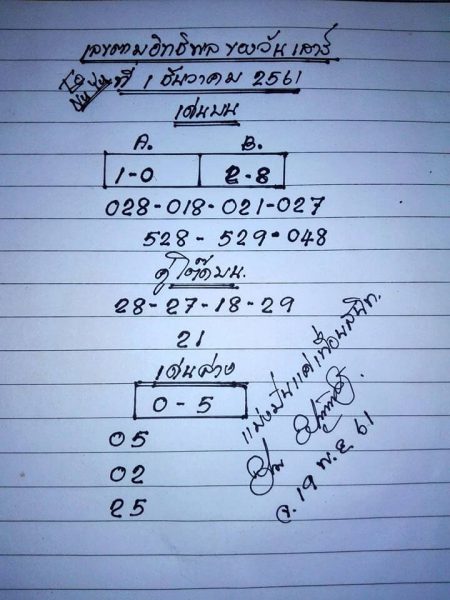 เลขตามอิทธิพลของวันเสาร์
ที่ 1 ธันวาคม 2561
เด่นบน
A. B.
1-0 2-8
028-018-021-027
528-529-048
คู่โต๊ดบน.
28-27-18-29
21
เด่นล่าง
0-5
05
02
25
แบ่งปันแค่เพื่อนสนิท.
จ.19 พ.ย 61